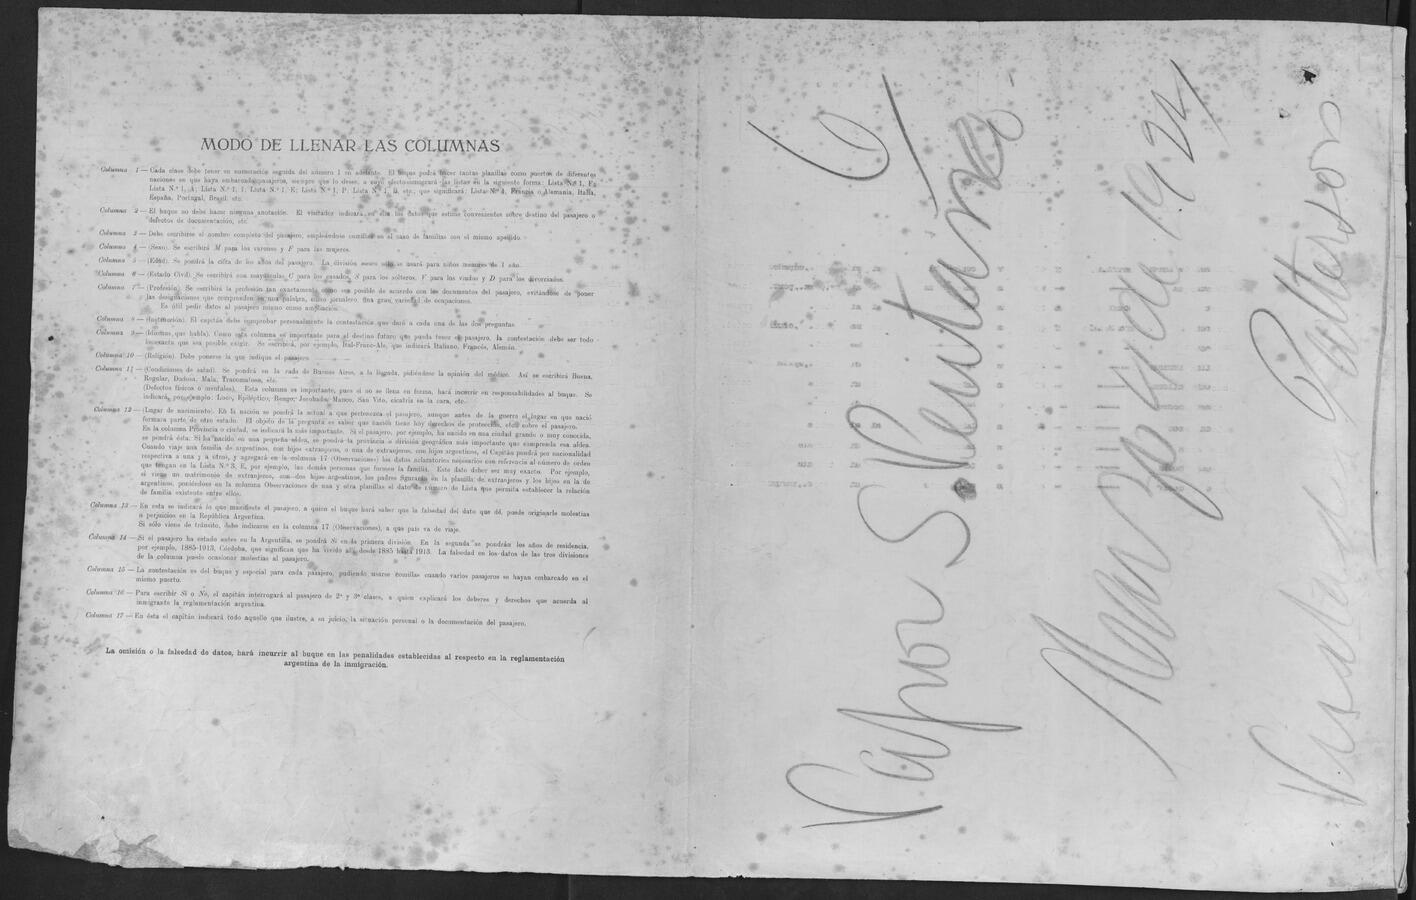 MODO DE LLENAR LAS COLUMNAS
Columna 1 — Cada clase debe tener su numeración seguida del número 1 en adelante. El buque podrá hacer tantas planillas como puertos de diferentes
naciones en que haya embarcado pasajeros, siempre que lo desee, a cuyo efecto consignará las listas en la siguiente forma: Lista N.º 1, F;
Lista N.º 1, A; Lista N.º 1, I; Lista N.º 1, E; Lista N.º 1, P; Lista N.º 1, B, etc., que significará: Lista N.º 1, Francia o Alemania, Italia,
España, Portugal, Brasil, etc.
Columna 2 — El buque no debe hacer ninguna anotación. El visitador indicará en ella los datos que estime convenientes sobre destino del pasajero o
defectos de documentación, etc.
Columna 3 — Debe escribirse el nombre completo del pasajero, empleándose comillas en el caso de familias con el mismo apellido.
Columna 4 — (Sexo). Se escribirá M para los varones y F para las mujeres.
Columna 5 — (Edad). Se pondrá la cifra de los años del pasajero. La división meses sólo se usará para niños menores de 1 año.
Columna 6 — (Estado Civil). Se escribirá con mayúsculas C para los casados, S para los solteros, V para los viudos y D para los divorciados.
Columna 7 — (Profesión). Se escribirá la profesión tan exactamente como sea posible de acuerdo con los documentos del pasajero, evitándose de poner
las designaciones que comprenden en una palabra, como jornalero, una gran variedad de ocupaciones.
Es útil pedir datos al pasajero mismo como ampliación.
Columna 8 — (Instrucción). El capitán debe comprobar personalmente la contestación que dará a cada una de las dos preguntas.
Columna 9 — (Idiomas que habla). Como esta columna es importante para el destino futuro que pueda tener el pasajero, la contestación debe ser todo
lo exacta que sea posible exigir. Se escribirá, por ejemplo, Ital-Franc-Ale, que indicará Italiano, Francés, Alemán.
Columna 10 — (Religión). Debe ponerse la que indique el pasajero.
Columna 11 — (Condiciones de salud). Se pondrá en la rada de Buenos Aires, a la llegada, pidiéndose la opinión del médico. Así se escribirá Buena,
Regular, Dudosa, Mala, Tracomatoso, etc.
(Defectos físicos o mentales). Esta columna es importante, pues si no se llena en forma, hará incurrir en responsabilidades al buque. Se
indicará, por ejemplo: Loco, Epiléptico, Rengo, Jorobado, Manco, San Vito, cicatriz en la cara, etc.
Columna 12 — (Lugar de nacimiento). En la nación se pondrá la actual a que pertenezca el pasajero, aunque antes de la guerra el lugar en que nació
formara parte de otro estado. El objeto de la pregunta es saber que nación tiene hoy derechos de protección, etc., sobre el pasajero.
En la columna Provincia o ciudad, se indicará la más importante. Si el pasajero, por ejemplo, ha nacido en una ciudad grande o muy conocida,
se pondrá ésta. Si ha nacido en una pequeña aldea, se pondrá la provincia o división geográfica más importante que comprenda esa aldea.
Cuando viaje una familia de argentinos, con hijos extranjeros, o una de extranjeros, con hijos argentinos, el Capitán pondrá por nacionalidad
respectiva a una y a otros, y agregará en la columna 17 (Observaciones) los datos aclaratorios necesarios con referencia al número de orden
que tengan en la Lista N.º 3, E, por ejemplo, las demás personas que formen la familia. Este dato deber ser muy exacto. Por ejemplo,
si viene un matrimonio de extranjeros, con dos hijos argentinos, los padres figurarán en la planilla de extranjeros y los hijos en la de
argentinos, poniéndose en la columna Observaciones de una y otra planillas el dato de número de Lista que permita establecer la relación
de familia existente entre ellos.
Columna 13 — En esta se indicará lo que manifieste el pasajero, a quien el buque hará saber que la falsedad del dato que dé, puede originarle molestias
o perjuicios en la República Argentina.
Si sólo viene de tránsito, debe indicarse en la columna 17 (Observaciones), a que país va de viaje.
Columna 14 — Si el pasajero ha estado antes en la Argentina, se pondrá Sí en la primera división. En la segunda se pondrán los años de residencia,
por ejemplo, 1885-1913, Córdoba, que significan que ha vivido allí desde 1885 hasta 1913. La falsedad en los datos de las tres divisiones
de la columna puede ocasionar molestias al pasajero.
Columna 15 — La contestación es del buque y especial para cada pasajero, pudiendo usarse comillas cuando varios pasajeros se hayan embarcado en el
mismo puerto.
Columna 16 — Para escribir Sí o No, el capitán interrogará al pasajero de 2ª y 3ª clases, a quien explicará los deberes y derechos que acuerda al
inmigrante la reglamentación argentina.
Columna 17 — En ésta el capitán indicará todo aquello que ilustre, a su juicio, la situación personal o la documentación del pasajero.
La omisión o la falsedad de datos, hará incurrir al buque en las penalidades establecidas al respecto en la reglamentación
argentina de la inmigración.
6
Vapor S. Ventana
1924
Visitador Patterson